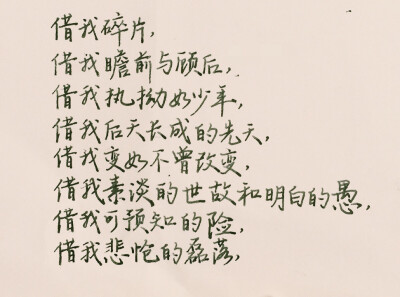 借我碎片,
借我瞻前与顾后,
借我执拗如少年,
借我后天长成的先天,
借我变如不曾改变,
借我素淡的世故和明白的愚,
借我可预知的险,
借我悲怆的磊落,